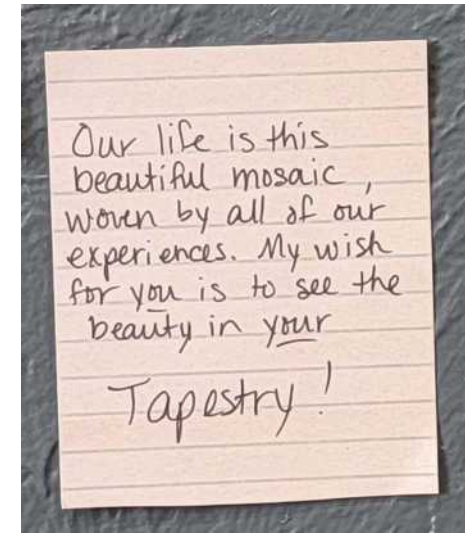 Our life is this
beautiful mosaic,
woven by all of our
experiences. My wish
for you is to see the
beauty in your
Tapestry!